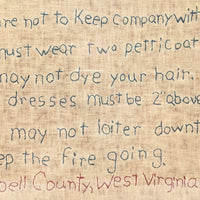 are not to Keep Company with
must wear two petticoat
may not dye your hair.
dresses must be 2" above
may not loiter downt
ep the fire going.
bell County, West Virginia